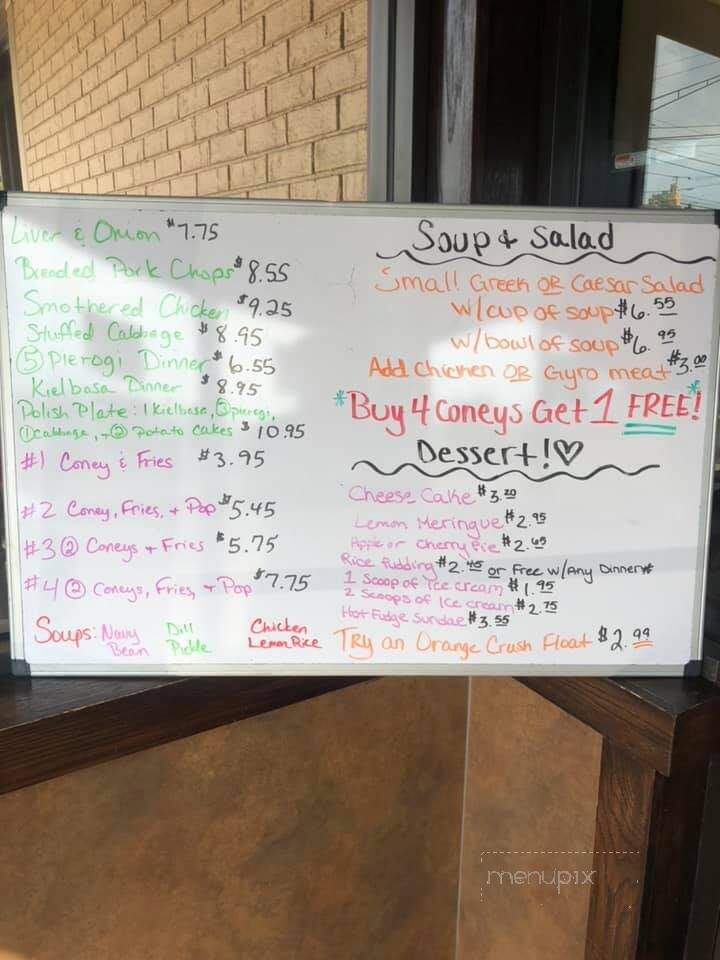 Liver & Onion $7.75
Breaded Pork Chops $8.55
Smothered Chicken $9.25
Stuffed Cabbage $8.95
⑤ Pierogi Dinner $6.55
Kielbasa Dinner $8.95
Polish Plate: 1 Kielbasa, ③ pierogi,
① cabbage, + ② Potato Cakes $10.95
#1 Coney & Fries $3.95
#2 Coney, Fries, + Pop $5.45
#3 ② Coneys + Fries $5.75
#4 ② Coneys, Fries, + Pop $7.75
Soups: Navy Bean Dill Pickle Chicken Lemon Rice
Soup & Salad
Small Greek OR Caesar Salad
w/cup of soup $6.55
w/bowl of soup $6.95
Add Chicken OR Gyro meat $3.00
*Buy 4 Coneys Get 1 FREE!*
Dessert!♡
Cheese Cake $3.20
Lemon Meringue $2.95
Apple or Cherry Pie $2.65
Rice Pudding $2.45 or Free w/Any Dinner*
1 Scoop of Ice cream $1.95
2 Scoops of Ice cream $2.75
Hot Fudge Sundae $3.55
Try an Orange Crush Float $2.99
menupix